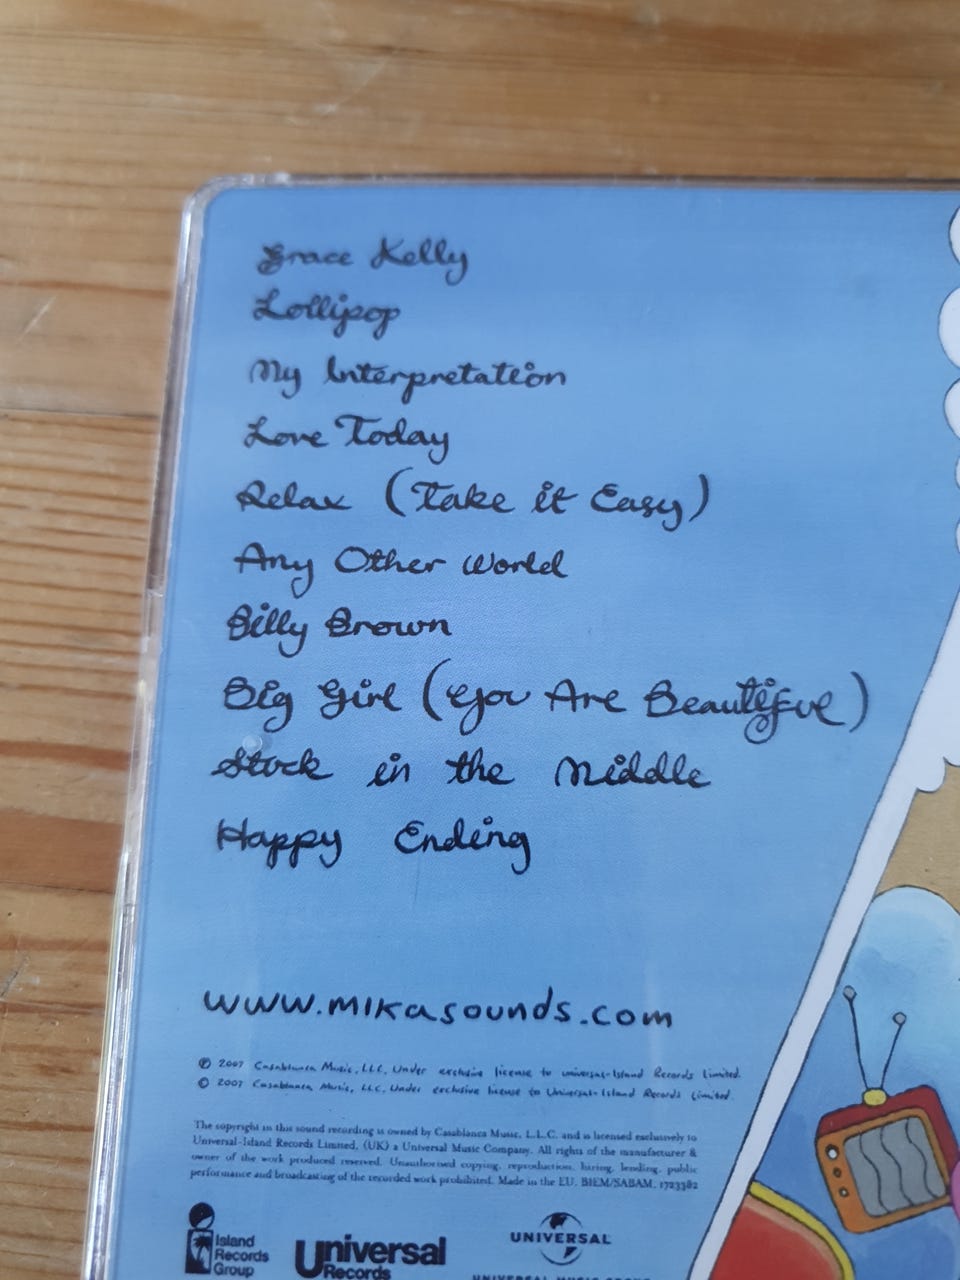 Grace Kelly
Lollipop
My Interpretation
Love Today
Relax (Take it Easy)
Any Other World
Billy Brown
Big Girl (You Are Beautiful)
Stuck in the Middle
Happy Ending
www.mikasounds.com
℗ 2007 Casablanca Music, LLC, Under exclusive license to Universal-Island Records Limited.
© 2007 Casablanca Music, LLC, Under exclusive license to Universal-Island Records Limited.
The copyright in this sound recording is owned by Casablanca Music, L.L.C. and is licensed exclusively to
Universal-Island Records Limited, (UK) a Universal Music Company. All rights of the manufacturer &
owner of the work produced reserved. Unauthorised copying, reproduction, hiring, lending, public
performance and broadcasting of the recorded work prohibited. Made in the EU. BIEM/SABAM. 1723382
Island
Records
Group
Universal
Records
UNIVERSAL
UNIVERSAL MUSIC GROUP